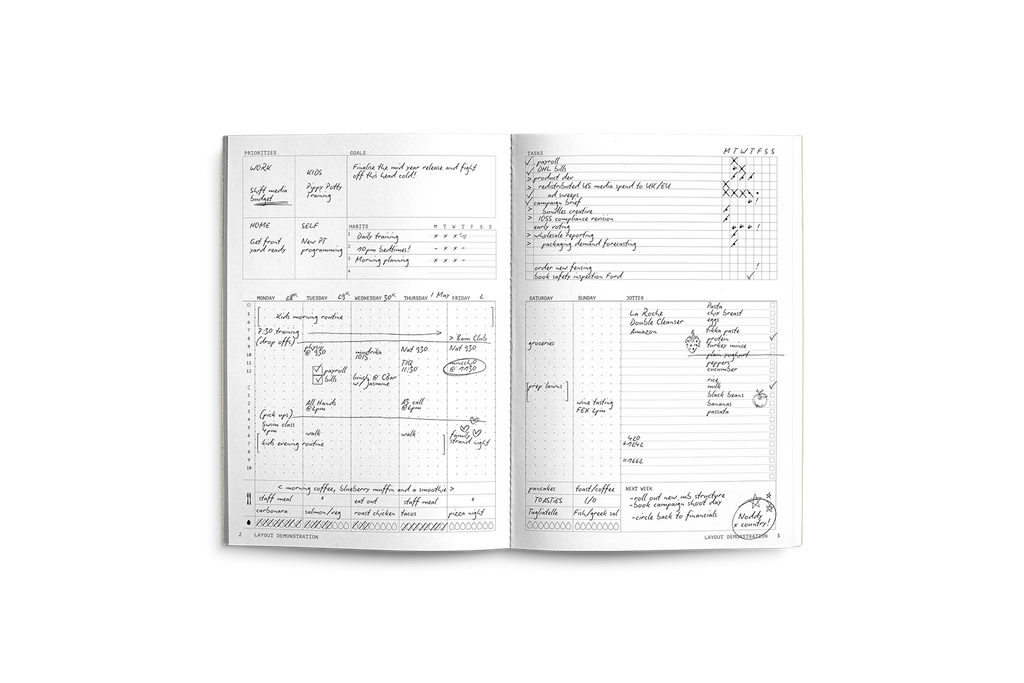 PRIORITIES
WORK
Shift media
budget
KIDS
Pippy Potty
Training
HOME
Get front
yard ready
SELF
New PT
programming
GOALS
Finalise the mid year release and fight
off this head cold!
HABITS M T W T F S S
1 Daily training x x x
2 10pm bedtimes! - x x -
3 Morning planning x x x -
4
MONDAY 28th TUESDAY 29th WEDNESDAY 30th THURSDAY 1 May FRIDAY 2
Kids morning routine
7:30 training
(drop offs) > 8am Club
physio
@ 930
mudrika
1015
Nat 930
Nat 930
TIQ
11:30
@ 1130
payroll
bills
lunch @ CBar
w/ Jasmine
All Hands
@2pm
AS call
@2pm
(pick ups)
Swim class
4pm
walk
walk
family
strand night
kids evening routine
< morning coffee, blueberry muffin and a smoothie >
staff meal " eat out staff meal "
carbonara salmon/veg roast chicken tacos pizza night
2 LAYOUT DEMONSTRATION
TASKS M T W T F S S
payroll
DHL bills
> product dev
> redistributed US media spend to UK/EU
ad sweeps
campaign brief
> bundles creative
> IOSS compliance revision
early voting
> wholesale reporting
> packaging demand forecasting
order new fencing
book safety inspection Ford
SATURDAY SUNDAY JOTTER
groceries
prep lawns
wine tasting
FEX 2pm
La Roche
Double Cleanser
Amazon
Pasta
chix breast
eggs
tikka paste
protein
turkey mince
plain yoghurt
peppers
cucumber
rice
milk
black beans
bananas
passata
420
+1242
=1662
pancakes toast/coffee
TOASTIES L/O
Tagliatelle Fish/greek sal
NEXT WEEK
-roll out new mb structure
-book campaign shoot day
-circle back to financials
Noddy
x country!
LAYOUT DEMONSTRATION 3